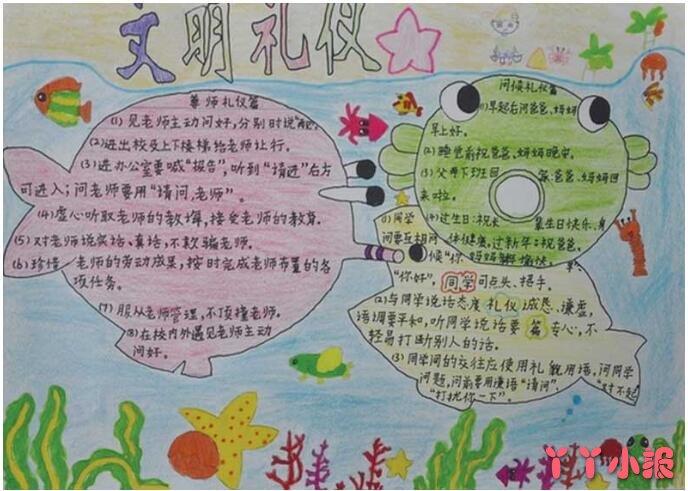 文明礼仪
尊师礼仪篇
(1) 见老师主动问好，分别时说"再见"。
(2)进出校及上下楼梯给老师让行。
(3)进办公室要喊"报告"，听到"请进"后方
可进入；问老师要用"请问，老师"。
(4)虚心听取老师的教悔，接受老师的教育。
(5)对老师说实话、真话，不欺骗老师。
(6)珍惜老师的劳动成果，按时完成老师布置的各
项任务。
(7)服从老师管理，不顶撞老师。
(8)在校内外遇见老师主动
问好。
问候礼仪篇
(1)早起后问爸爸、妈妈
早上好。
(2)睡觉前祝爸爸、妈妈晚安。
(3)父母下班回
爸爸、妈妈回
来啦。
(4)过生日：祝
生日快乐、身
体健康，过新年：祝爸爸、
妈妈新年愉快
(1)同学
间要互相问
候"你
"你好"，同学可点头、招手。
(2)与同学说话态度礼仪诚恳、谦虚，
语调要平和，听同学说话要篇专心，不
轻易打断别人的话。
(3)同学间的交往应使用礼貌用语，问同学
问题，问前要用谦语"请问"，"对不起
"打扰你一下"。
丫丫小报